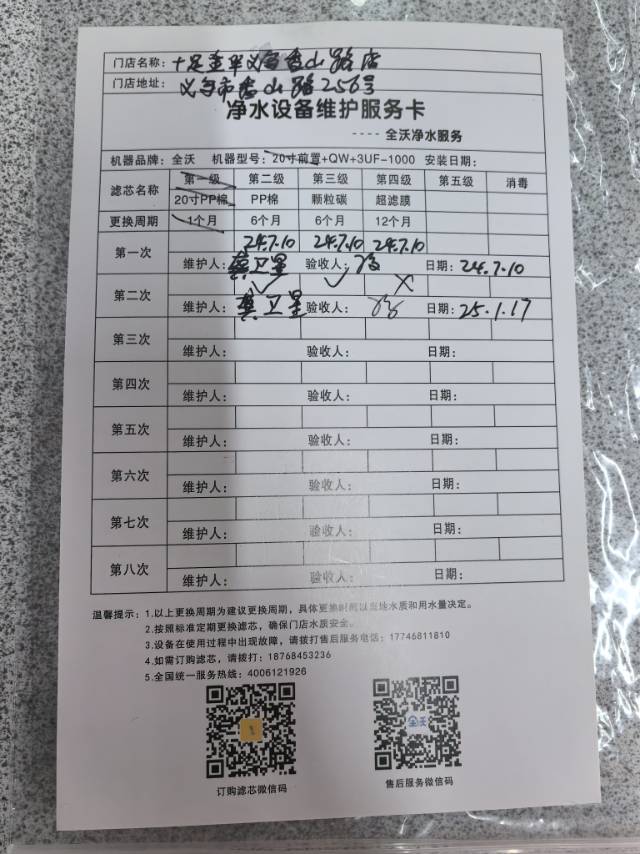 门店名称：十足金华义乌香山路店
门店地址：义乌市香山路256号
净水设备维护服务卡
---- 全沃净水服务
机器品牌：全沃 机器型号：20寸前置+QW+3UF-1000 安装日期：
滤芯名称 第一级 第二级 第三级 第四级 第五级 消毒
20寸PP棉 PP棉 颗粒碳 超滤膜
更换周期 1个月 6个月 6个月 12个月
第一次 24.7.10 24.7.10 24.7.10
维护人：龚卫星 验收人： 日期：24.7.10
第二次 ✓ ✓ ✗
龚卫星 验收人： 日期：25.1.17
第三次
维护人： 验收人： 日期：
第四次
维护人： 验收人： 日期：
第五次
维护人： 验收人： 日期：
第六次
维护人： 验收人： 日期：
第七次
维护人： 验收人： 日期：
第八次
维护人： 验收人： 日期：
温馨提示：1.以上更换周期为建议更换周期，具体更换时间以当地水质和用水量决定。
2.按照标准定期更换滤芯，确保门店水质安全。
3.设备在使用过程中出现故障，请拨打售后服务电话：17746811810
4.如需订购滤芯，请拨打：18768453236
5.全国统一服务热线：4006121926
全沃
订购滤芯微信码 售后服务微信码